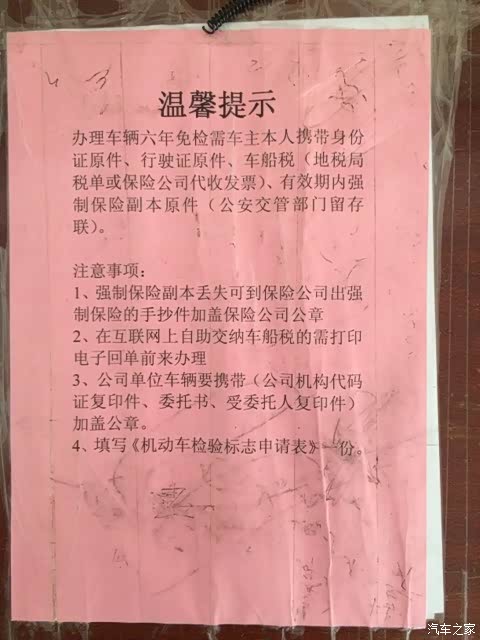 温馨提示
办理车辆六年免检需车主本人携带身份
证原件、行驶证原件、车船税（地税局
税单或保险公司代收发票）、有效期内强
制保险副本原件（公安交管部门留存
联）。
注意事项：
1、强制保险副本丢失可到保险公司出强
制保险的手抄件加盖保险公司公章
2、在互联网上自助交纳车船税的需打印
电子回单前来办理
3、公司单位车辆要携带（公司机构代码
证复印件、委托书、受委托人复印件）
加盖公章。
4、填写《机动车检验标志申请表》一份。
汽车之家